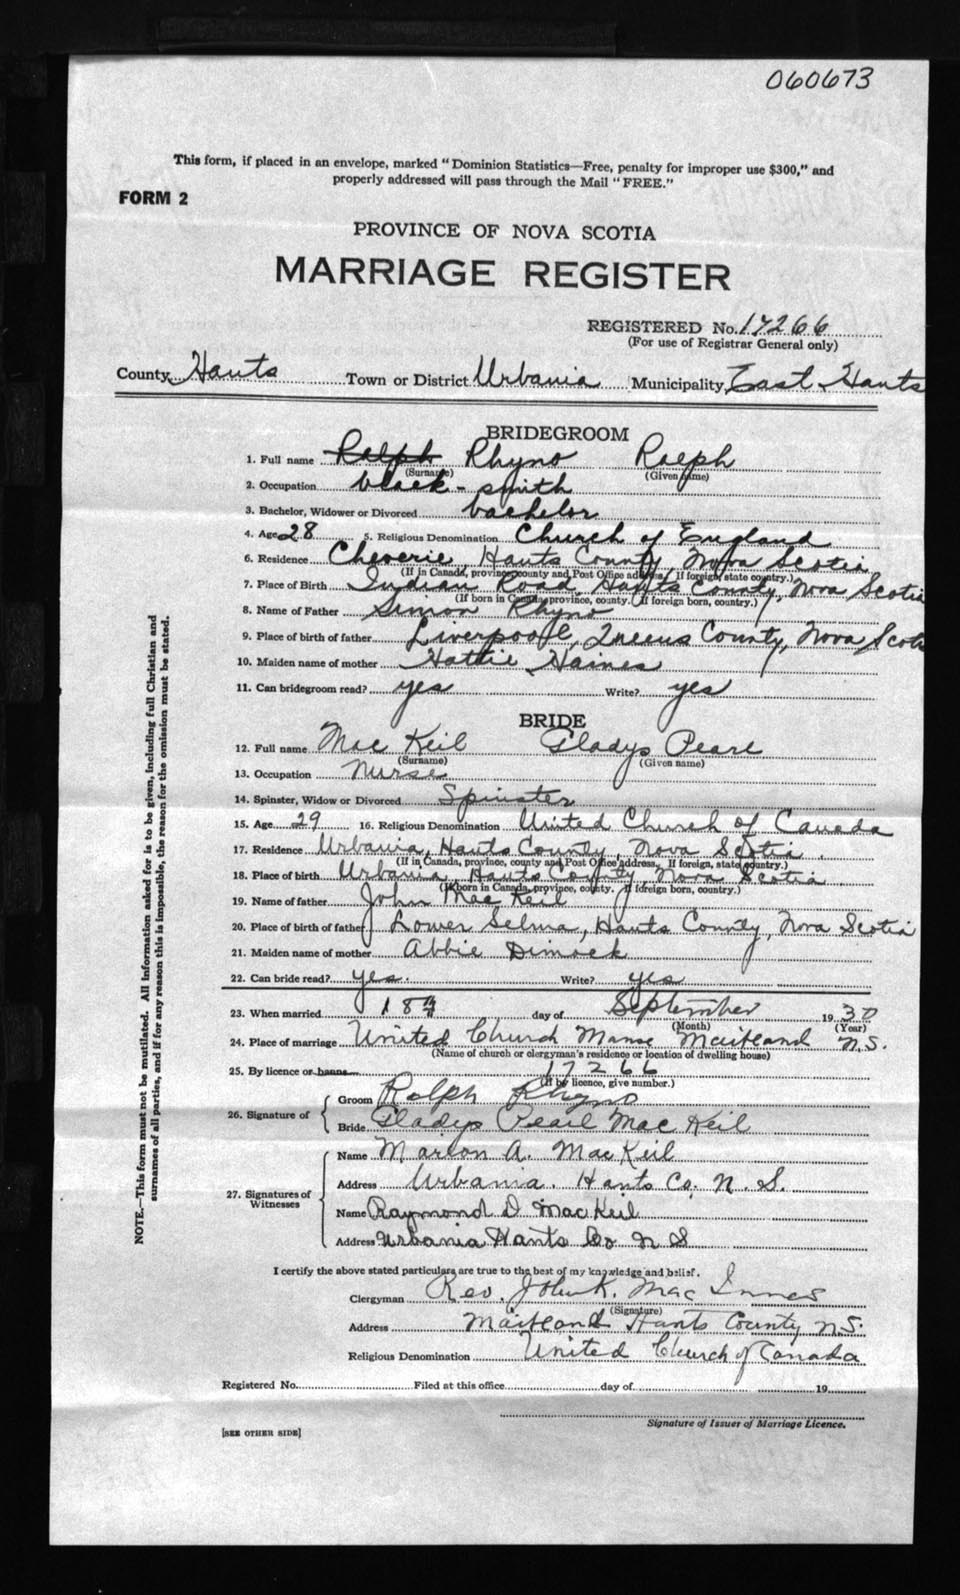 060673
This form, if placed in an envelope, marked "Dominion Statistics—Free, penalty for improper use $300," and
properly addressed will pass through the Mail "FREE."
FORM 2
PROVINCE OF NOVA SCOTIA
MARRIAGE REGISTER
REGISTERED No. 17266
(For use of Registrar General only)
County Hants Town or District Urbania Municipality East Hants
BRIDEGROOM
1. Full name Ralph Rhyno Ralph
(Surname) (Given name)
2. Occupation black-smith
3. Bachelor, Widower or Divorced bachelor
4. Age 28 5. Religious Denomination Church of England
6. Residence Cheverie Hants County, Nova Scotia
(If in Canada, province, county and Post Office address. If foreign, state country.)
7. Place of Birth Indian Road Hants County, Nova Scotia
(If born in Canada, province, county. If foreign born, country.)
8. Name of Father Simon Rhyno
9. Place of birth of father Liverpool, Queens County, Nova Scoti
10. Maiden name of mother Hattie Haines
11. Can bridegroom read? yes Write? yes
BRIDE
12. Full name Mac Keil Gladys Pearl
(Surname) (Given name)
13. Occupation Nurse
14. Spinster, Widow or Divorced Spinster
15. Age 29 16. Religious Denomination United Church of Canada
17. Residence Urbania, Hants County, Nova Scotia
(If in Canada, province, county and Post Office address. If foreign, state country.)
18. Place of birth Urbania Hants County Nova Scotia
(If born in Canada, province, county. If foreign born, country.)
19. Name of father John Mac Keil
20. Place of birth of father Lower Selma, Hants County, Nova Scotia
21. Maiden name of mother Abbie Dimock
22. Can bride read? yes. Write? yes
23. When married 18th day of September 1930
(Month) (Year)
24. Place of marriage United Church Manse Maitland N.S.
(Name of church or clergyman's residence or location of dwelling house)
25. By licence or banns 17266
(If by licence, give number.)
26. Signature of { Groom Ralph Rhyno
Bride Gladys Pearl Mac Keil
27. Signatures of Witnesses { Name Marion A. Mac Keil
Address Urbania. Hants Co. N. S.
Name Raymond D MacKeil
Address Urbania Hants Co N S
I certify the above stated particulars are true to the best of my knowledge and belief.
Clergyman Rev. John K. Mac Innes
(Signature)
Address Maitland Hants County N.S.
Religious Denomination United Church of Canada
Registered No. Filed at this office day of 19
Signature of Issuer of Marriage Licence.
[SEE OTHER SIDE]
NOTE.—This form must not be mutilated. All information asked for is to be given, including full Christian and
surnames of all parties, and if for any reason this is impossible, the reason for the omission must be stated.